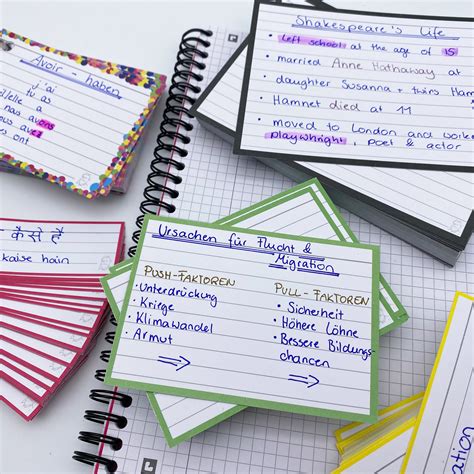 Avoir - haben
j'ai
tu as
elle a
nous avons
avez
ont
Shakespeare's Life
• Left school at the age of 15
• married Anne Hathaway at
• daughter Susanna + twins Ham
Hamnet died at 11
• moved to London and worke
playwright, poet & actor
कैसे हैं
kaise hain
Ursachen für Flucht &
Migration
PUSH-FAKTOREN
• Unterdrückung
• Kriege
• Klimawandel
• Armut
PULL-FAKTOREN
• Sicherheit
• Höhere Löhne
• Bessere Bildungs-
chancen